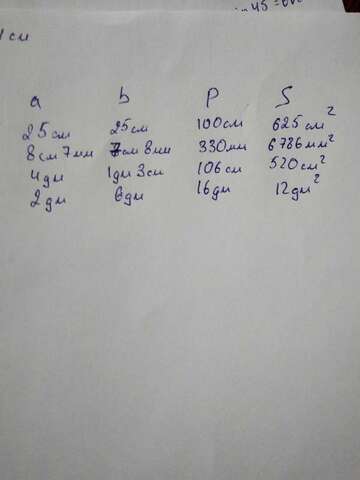 1 см
a b P S
25см 25см 100см 625см²
8см 7мм 7см 8мм 330мм 6786мм²
4дм 1дм 3см 106см 520см²
2дм 6дм 16дм 12дм²